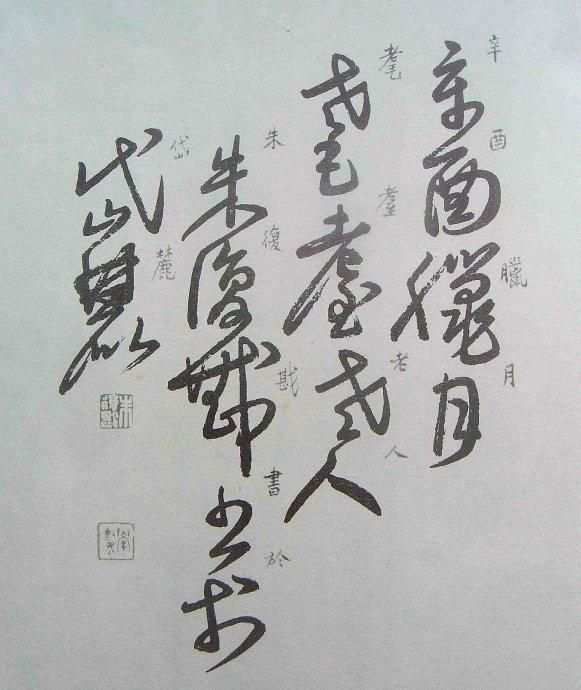 辛酉臘月
辛酉臘月
耄耋老人
耄耋老人
朱復戡書於
朱復戡書於
岱麓
岱麓